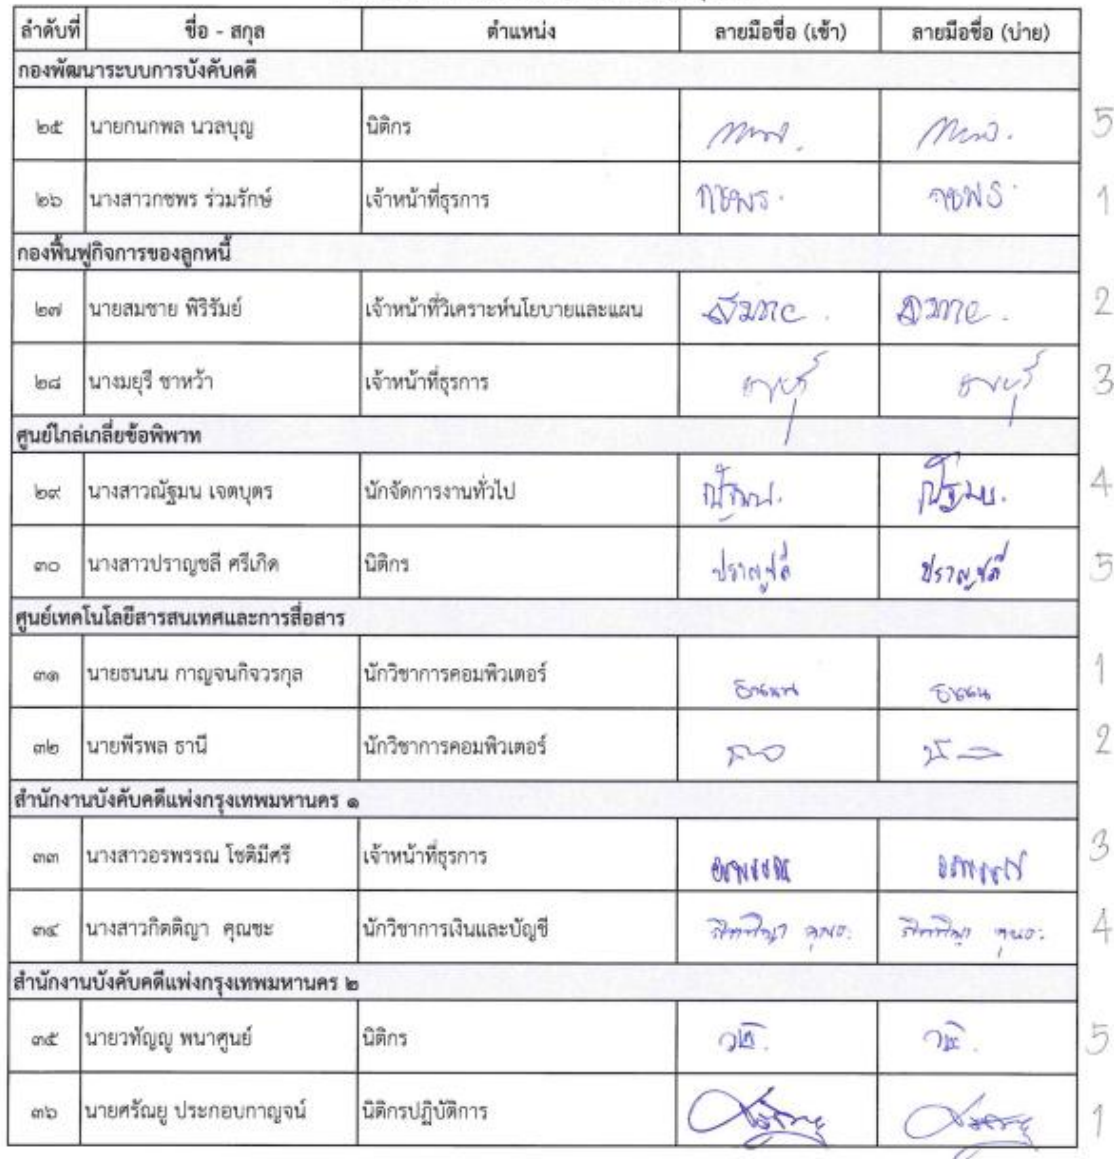 ลำดับที่ ชื่อ - สกุล ตำแหน่ง ลายมือชื่อ (เช้า) ลายมือชื่อ (บ่าย)
กองพัฒนาระบบการบังคับคดี
๒๕ นายกนกพล นวลบุญ นิติกร 5
๒๖ นางสาวกชพร ร่วมรักษ์ เจ้าหน้าที่ธุรการ กชพร กชพร 1
กองฟื้นฟูกิจการของลูกหนี้
๒๗ นายสมชาย พิริรัมย์ เจ้าหน้าที่วิเคราะห์นโยบายและแผน 2
๒๘ นางมยุรี ชาหว้า เจ้าหน้าที่ธุรการ 3
ศูนย์ไกล่เกลี่ยข้อพิพาท
๒๙ นางสาวณัฐมน เจตบุตร นักจัดการงานทั่วไป ณัฐมน. 4
๓๐ นางสาวปราญชลี ศรีเกิด นิติกร ปราญชลี ปราญชลี 5
ศูนย์เทคโนโลยีสารสนเทศและการสื่อสาร
๓๑ นายธนนน กาญจนกิจวรกุล นักวิชาการคอมพิวเตอร์ 1
๓๒ นายพีรพล ธานี นักวิชาการคอมพิวเตอร์ 2
สำนักงานบังคับคดีแพ่งกรุงเทพมหานคร ๑
๓๓ นางสาวอรพรรณ โชติมีศรี เจ้าหน้าที่ธุรการ 3
๓๔ นางสาวกิตติญา คุณชะ นักวิชาการเงินและบัญชี 4
สำนักงานบังคับคดีแพ่งกรุงเทพมหานคร ๒
๓๕ นายวทัญญู พนาศูนย์ นิติกร 5
๓๖ นายศรัณยู ประกอบกาญจน์ นิติกรปฏิบัติการ 1